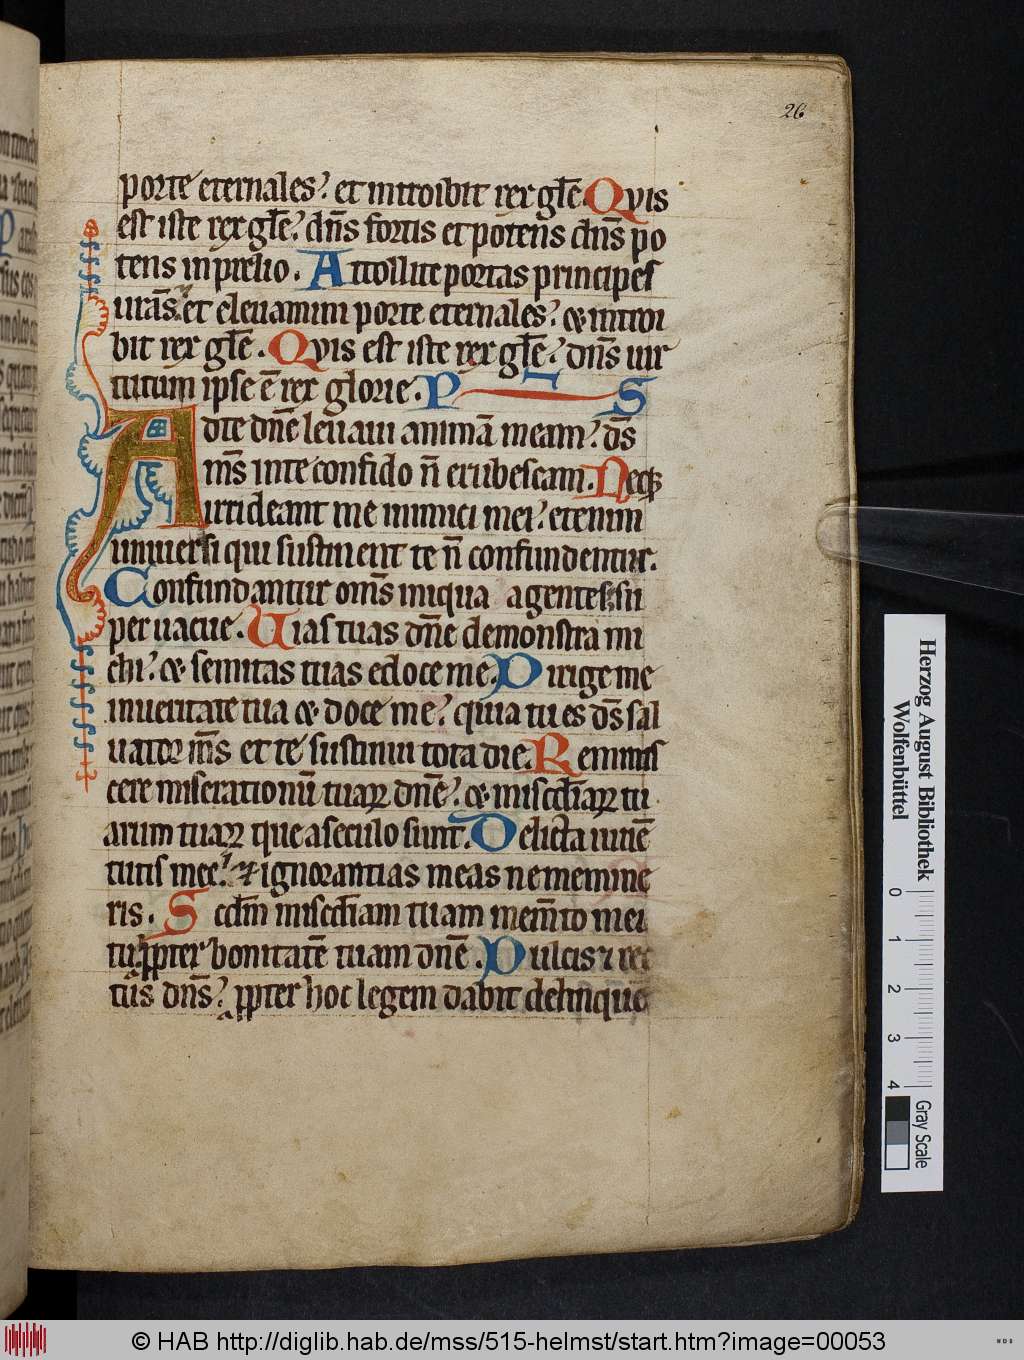 26
porte eternales? et introibit rex gl̄e. Qvis
est iste rex gl̄e? dn̄s fortis et potens dn̄s po
tens in prelio. Attollite portas principes
urās. et eleuamini porte eternales? & introi
bit rex gl̄e. Qvis est iste rex gl̄e? dn̄s uir
tutum ipse ē rex glorie. P S
Adte dn̄e leuaui animā meam? ds̄
ms̄ inte confido n̄ erubescam. Neqꝫ
irrideant me inimici mei? etenim
uniuersi qui sustinent te n̄ confundentur.
Confundantur oms̄ iniqua agentes su
per uacue. Uias tuas dn̄e demonstra mi
chi? & semitas tuas edoce me. Dirige me
inueritate tua & doce me? quia tu es ds̄ sal
uator ms̄ et te sustinui tota die. Reminis
cere miserationū tuaꝝ dn̄e? & misc̄diaꝝ tu
arum tuaꝝ que aseculo sunt. Delicta iuuē
tutis mee? ⁊ ignorantias meas ne memine
ris. Scd̄m misc̄diam tuam mem̄to mei
tu ꝓpter bonitatē tuam dn̄e. Dulcis ⁊ rec
tus dn̄s? ꝓpter hoc legem dabit delinquē
Herzog August Bibliothek
Wolfenbüttel
0 1 2 3 4
Gray Scale
© HAB http://diglib.hab.de/mss/515-helmst/start.htm?image=00053